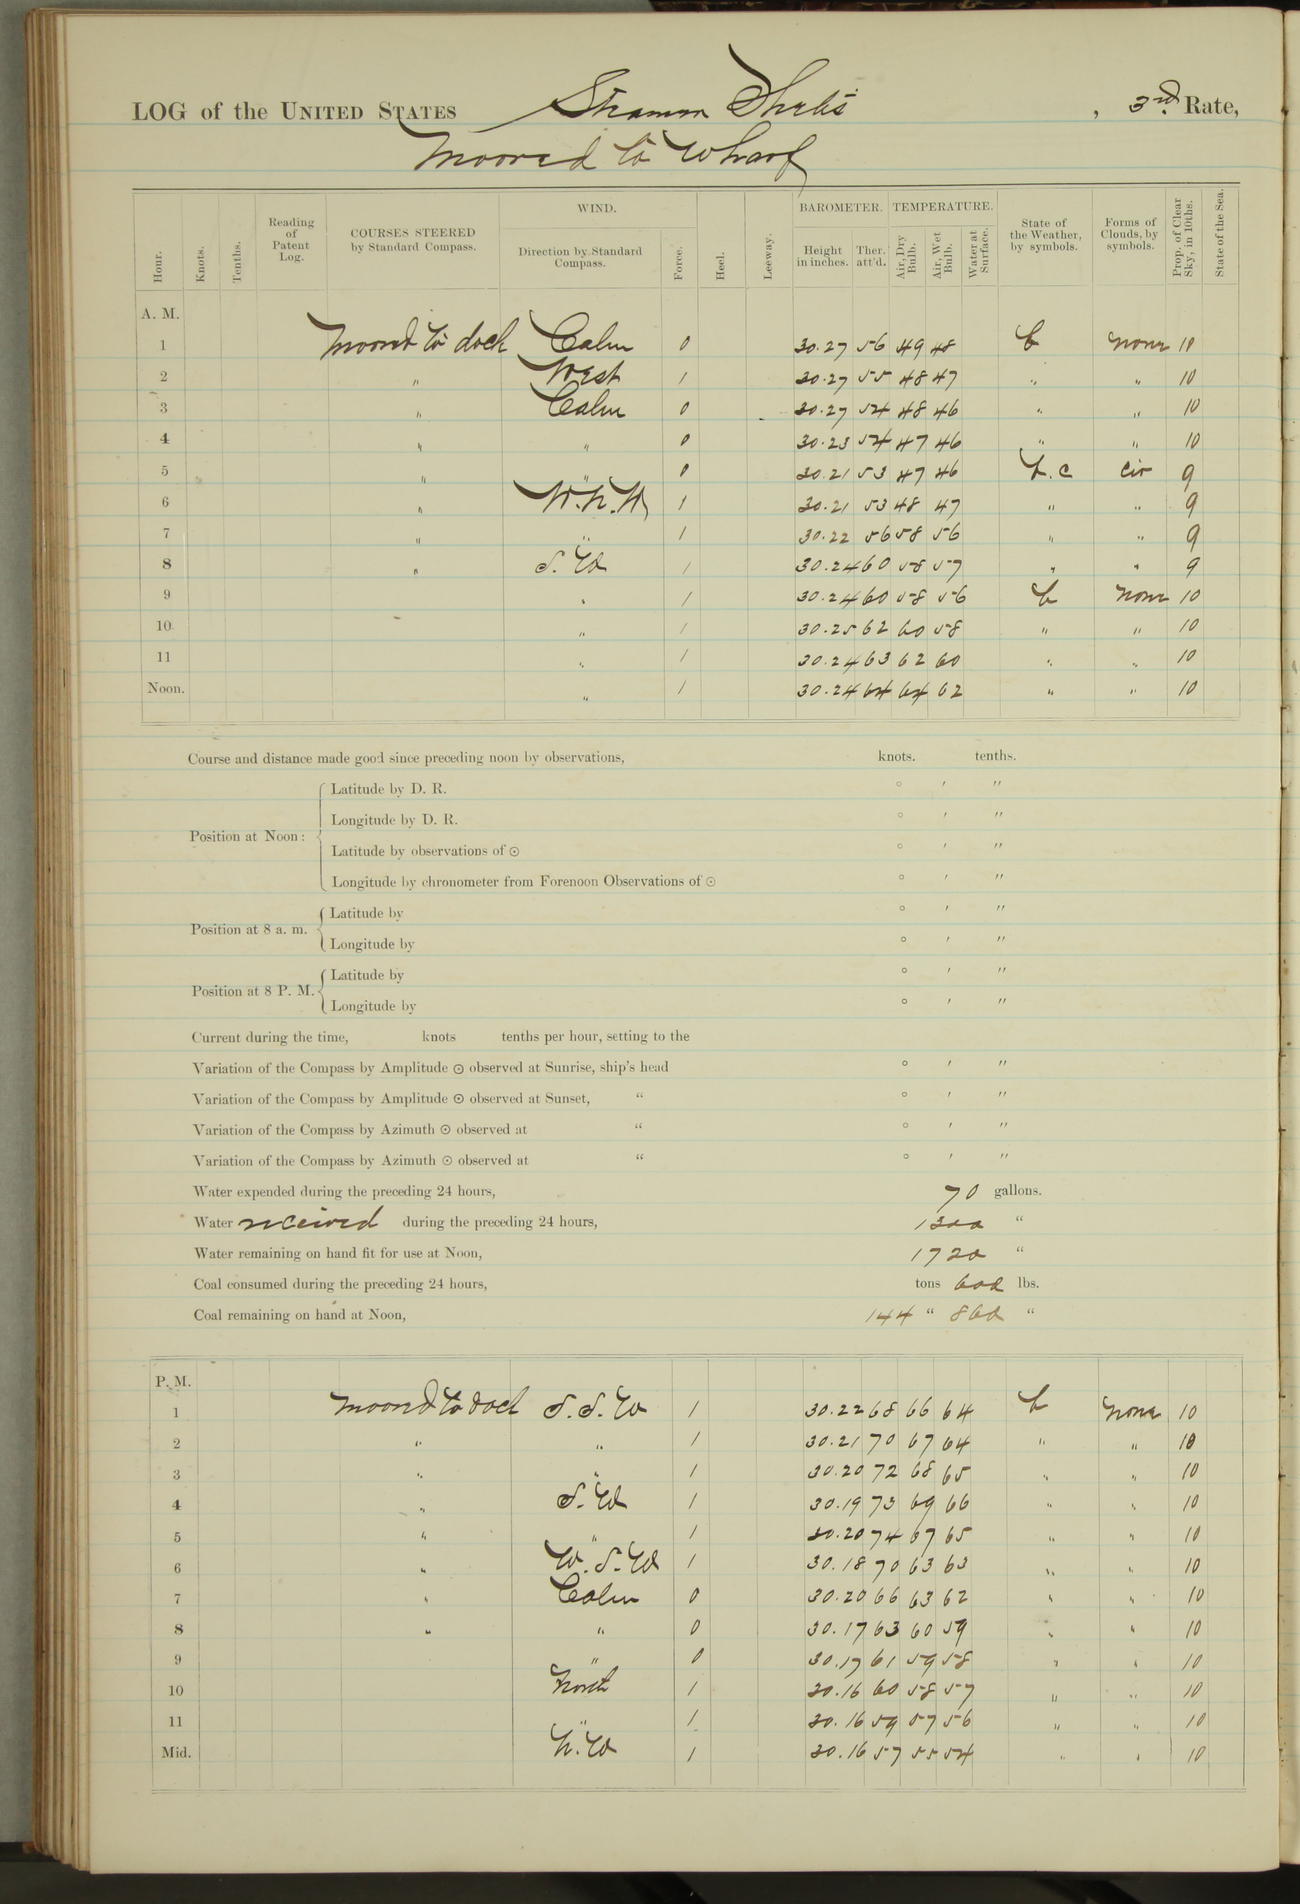 LOG of the UNITED STATES Steamer Thetis , 3rd Rate,
Moored to Wharf
Hour. Knots. Tenths. Reading of Patent Log. COURSES STEERED by Standard Compass. WIND. Direction by Standard Compass. Force. Heel. Leeway. BAROMETER. Height in inches. Ther. att'd. TEMPERATURE. Air, Dry Bulb. Air, Wet Bulb. Water at Surface. State of the Weather, by symbols. Forms of Clouds, by symbols. Prop. of Clear Sky, in 10ths. State of the Sea.
A. M.
1 Moored to dock Calm 0 30.27 56 49 48 b none 10
2 " West 1 30.27 55 48 47 " " 10
3 " Calm 0 30.27 54 48 46 " " 10
4 " " 0 30.23 54 47 46 " " 10
5 " " 0 30.21 53 47 46 b.c cir 9
6 " W.N.W 1 30.21 53 48 47 " " 9
7 " " 1 30.22 56 58 56 " " 9
8 " S.W 1 30.24 60 58 57 " " 9
9 " 1 30.24 60 58 56 b none 10
10 " 1 30.25 62 60 58 " " 10
11 " 1 30.24 63 62 60 " " 10
Noon. " 1 30.24 64 64 62 " " 10
Course and distance made good since preceding noon by observations, knots. tenths.
Position at Noon:
Latitude by D. R. ° ′ ″
Longitude by D. R. ° ′ ″
Latitude by observations of ⊙ ° ′ ″
Longitude by chronometer from Forenoon Observations of ⊙ ° ′ ″
Position at 8 a. m.
Latitude by ° ′ ″
Longitude by ° ′ ″
Position at 8 P. M.
Latitude by ° ′ ″
Longitude by ° ′ ″
Current during the time, knots tenths per hour, setting to the
Variation of the Compass by Amplitude ⊙ observed at Sunrise, ship's head ° ′ ″
Variation of the Compass by Amplitude ⊙ observed at Sunset, " ° ′ ″
Variation of the Compass by Azimuth ⊙ observed at " ° ′ ″
Variation of the Compass by Azimuth ⊙ observed at " ° ′ ″
Water expended during the preceding 24 hours, 70 gallons.
Water received during the preceding 24 hours, 1300 "
Water remaining on hand fit for use at Noon, 1720 "
Coal consumed during the preceding 24 hours, tons 600 lbs.
Coal remaining on hand at Noon, 144 " 860 "
P. M.
1 Moored to dock S.S.W 1 30.22 68 66 64 b none 10
2 " " 1 30.21 70 67 64 " " 10
3 " " 1 30.20 72 68 65 " " 10
4 " S.W 1 30.19 73 69 66 " " 10
5 " " 1 30.20 74 67 65 " " 10
6 " W.S.W 1 30.18 70 63 63 " " 10
7 " Calm 0 30.20 66 63 62 " " 10
8 " " 0 30.17 63 60 59 " " 10
9 " 0 30.17 61 59 58 " " 10
10 North 1 30.16 60 58 57 " " 10
11 " 1 30.16 59 57 56 " " 10
Mid. N.W 1 30.16 57 55 54 " " 10